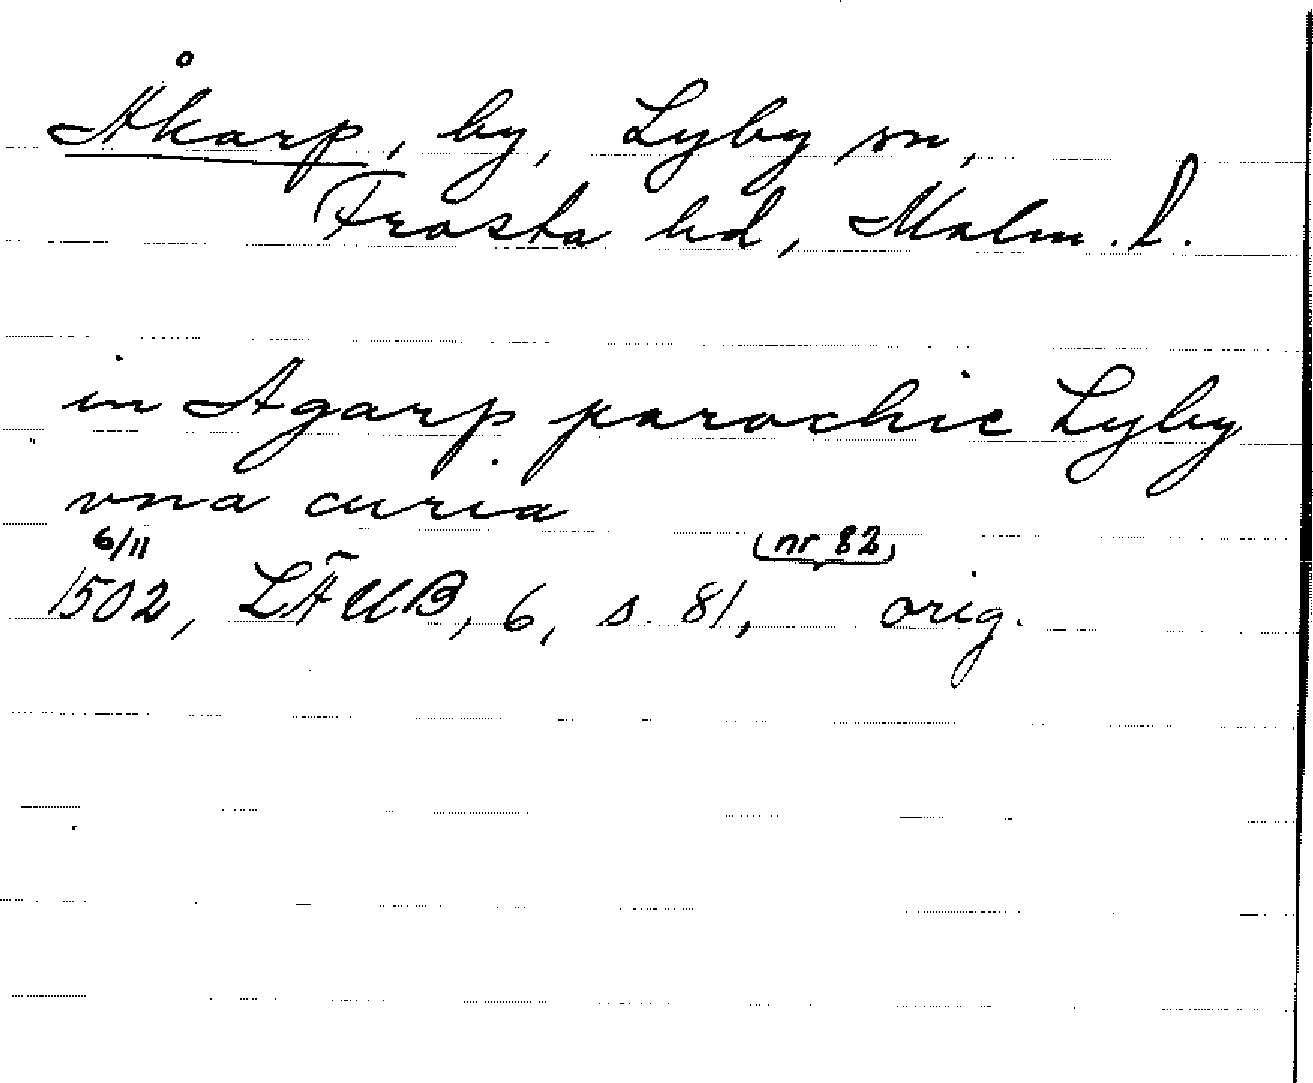 Åkarp, by, Lyby sn,
Frosta hd, Malm. l.
in Agarp parochie Lyby
vna curia
6/11 (nr 82)
1502, LÄUB, 6, s. 81, orig.